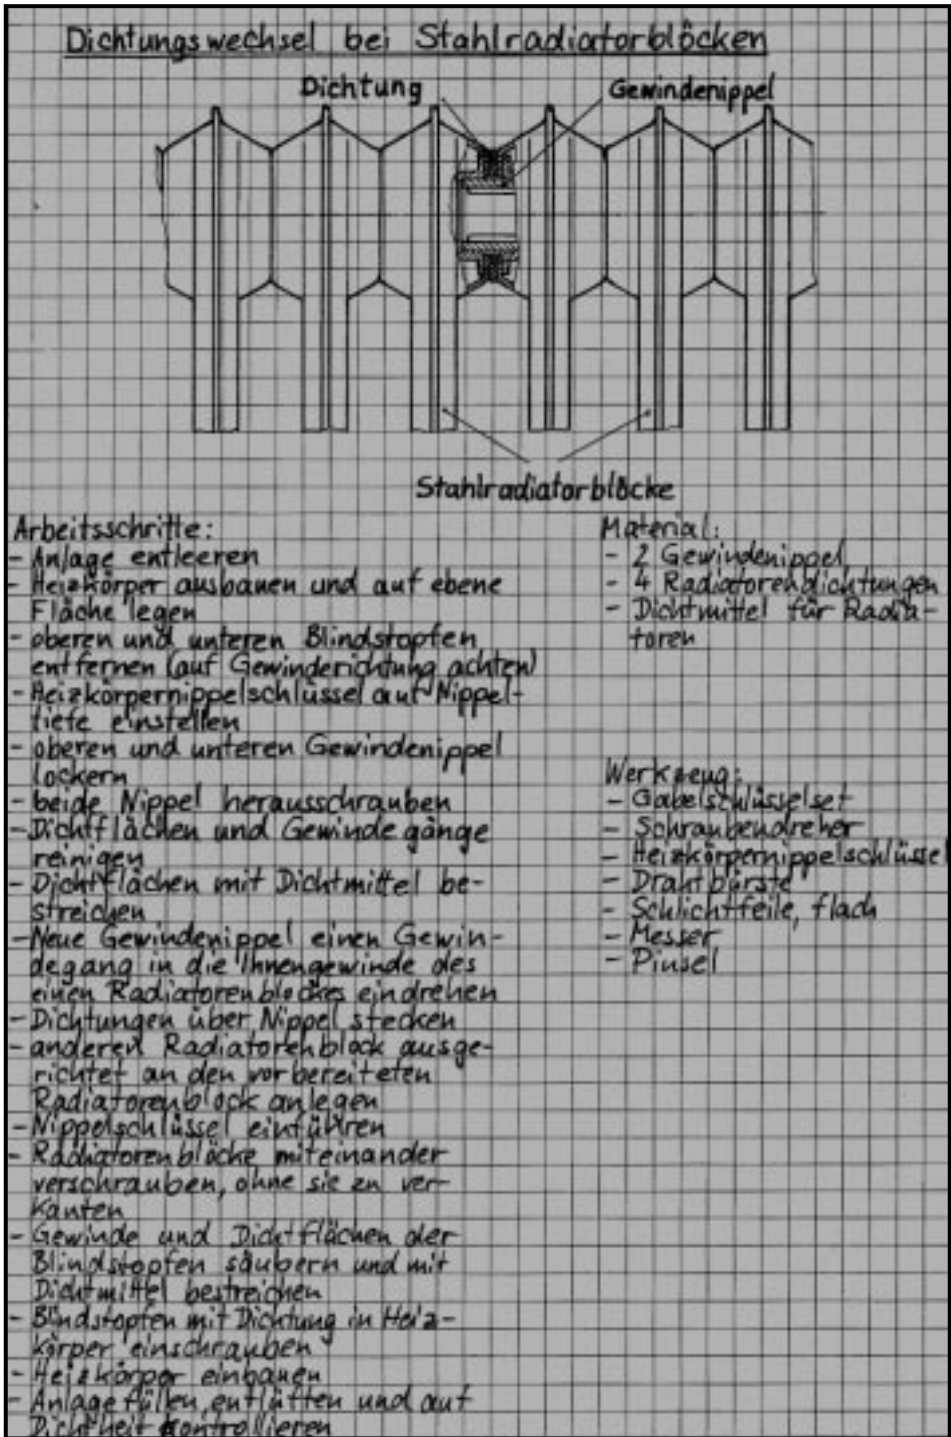 Dichtungswechsel bei Stahlradiatorblöcken
Dichtung
Gewindenippel
Stahlradiatorblöcke
Arbeitsschritte:
- Anlage entleeren
- Heizkörper ausbauen und auf ebene
Fläche legen
- oberen und unteren Blindstopfen
entfernen (auf Gewinderichtung achten)
- Heizkörpernippelschlüssel auf Nippel-
tiefe einstellen
- oberen und unteren Gewindenippel
lockern
- beide Nippel herausschrauben
- Dichtflächen und Gewindegänge
reinigen
- Dichtflächen mit Dichtmittel be-
streichen
- Neue Gewindenippel einen Gewin-
degang in die Innengewinde des
einen Radiatorenblockes eindrehen
- Dichtungen über Nippel stecken
- anderen Radiatorenblock ausge-
richtet an den vorbereiteten
Radiatorenblock anlegen
- Nippelschlüssel einführen
- Radiatorenblöcke miteinander
verschrauben, ohne sie zu ver-
kanten
- Gewinde und Dichtflächen der
Blindstopfen säubern und mit
Dichtmittel bestreichen
- Blindstopfen mit Dichtung in Heiz-
körper einschrauben
- Heizkörper einbauen
- Anlage füllen, entlüften und auf
Dichtheit kontrollieren
Material:
- 2 Gewindenippel
- 4 Radiatorendichtungen
- Dichtmittel für Radia-
toren
Werkzeug:
- Gabelschlüsselset
- Schraubendreher
- Heizkörpernippelschlüssel
- Drahtbürste
- Schlichtfeile, flach
- Messer
- Pinsel